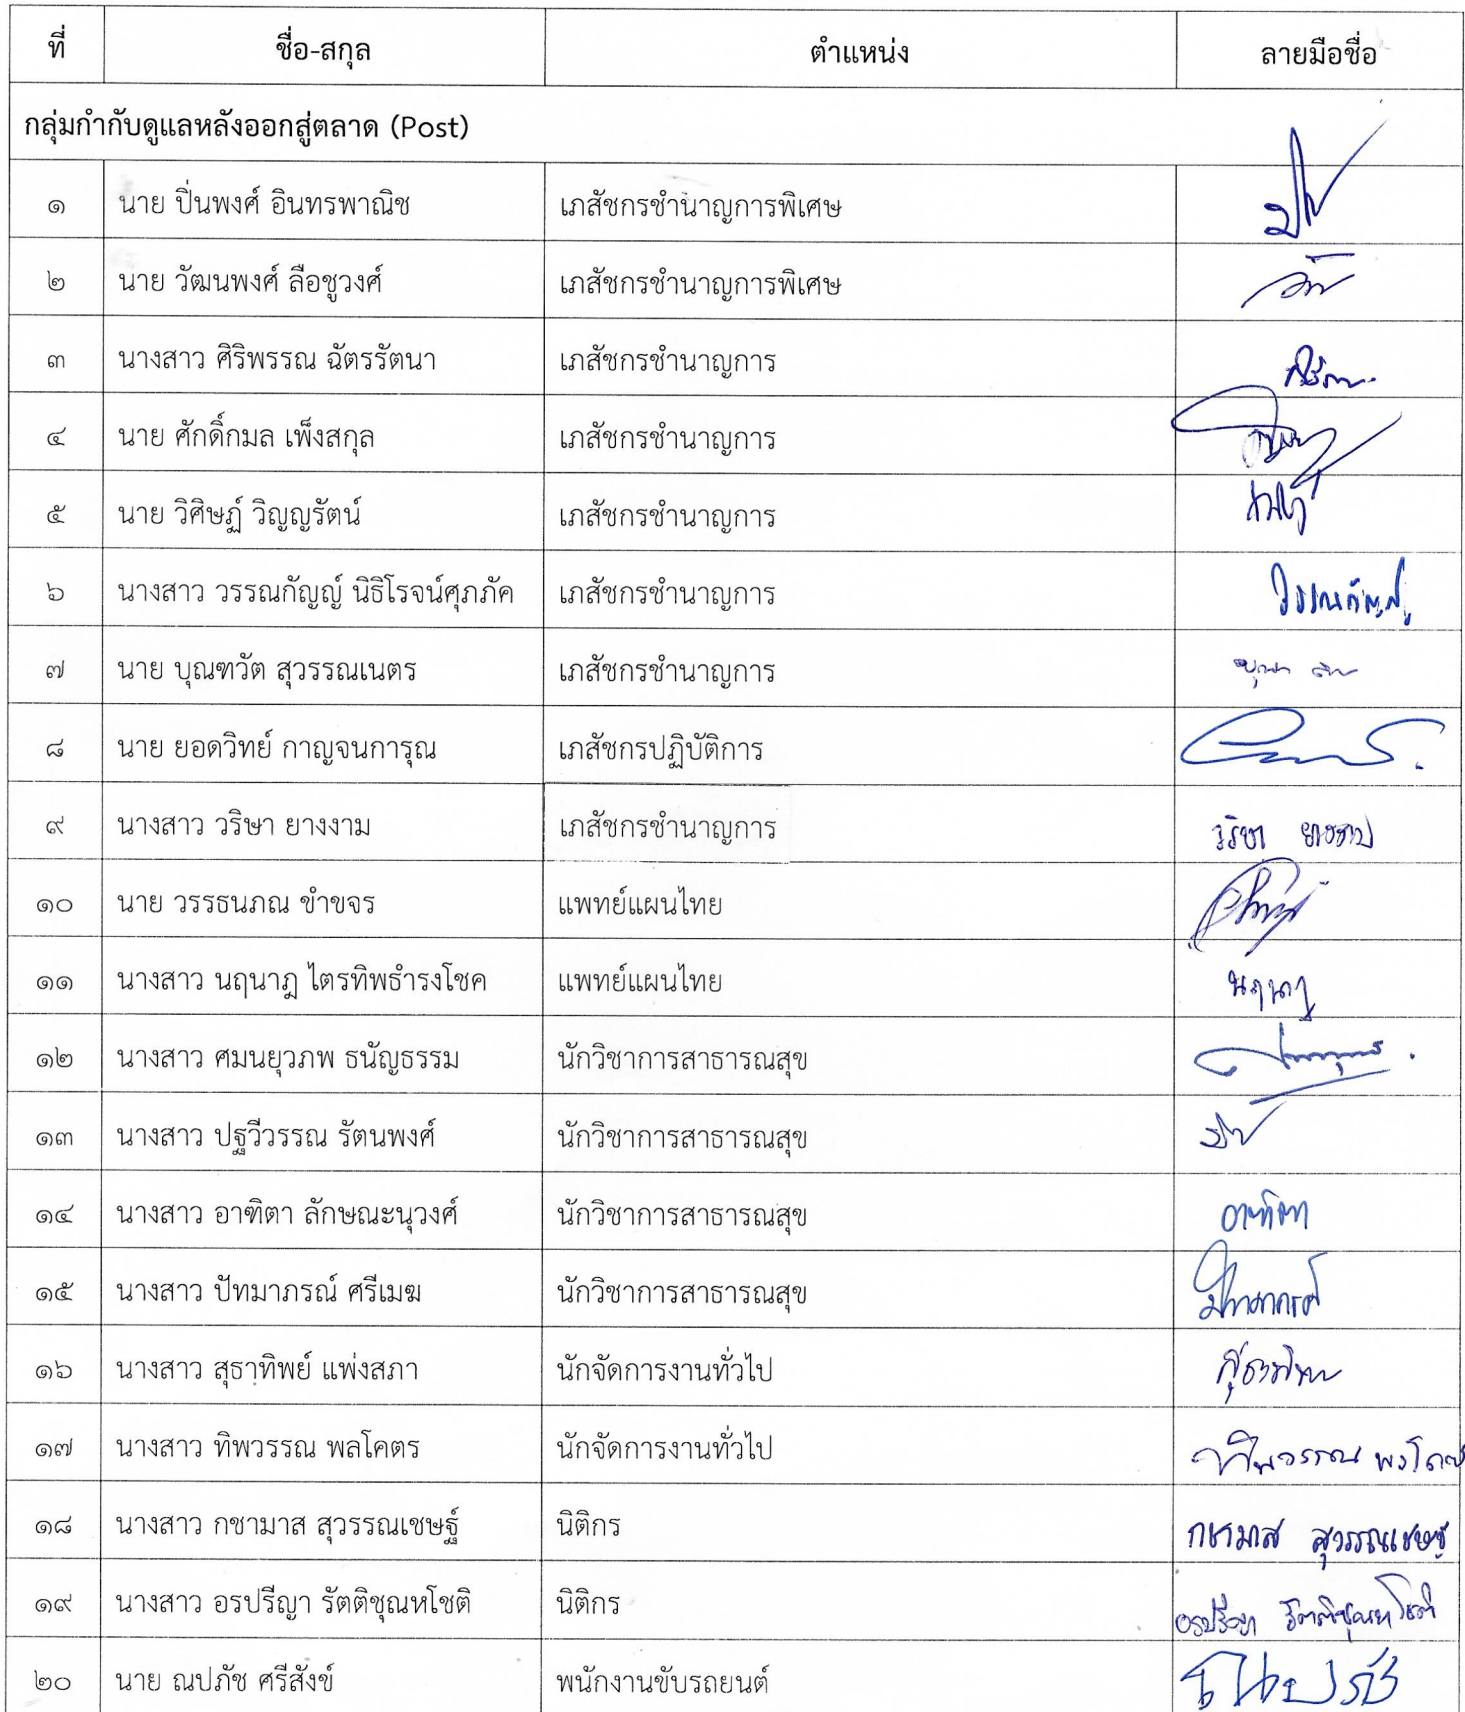 ที่ ชื่อ-สกุล ตำแหน่ง ลายมือชื่อ
กลุ่มกำกับดูแลหลังออกสู่ตลาด (Post)
๑ นาย ปิ่นพงศ์ อินทรพาณิช เภสัชกรชำนาญการพิเศษ
๒ นาย วัฒนพงศ์ ลือชูวงศ์ เภสัชกรชำนาญการพิเศษ
๓ นางสาว ศิริพรรณ ฉัตรรัตนา เภสัชกรชำนาญการ
๔ นาย ศักดิ์กมล เพ็งสกุล เภสัชกรชำนาญการ
๕ นาย วิศิษฏ์ วิญญรัตน์ เภสัชกรชำนาญการ
๖ นางสาว วรรณกัญญ์ นิธิโรจน์ศุภภัค เภสัชกรชำนาญการ วรรณกัญญ์
๗ นาย บุณฑวัต สุวรรณเนตร เภสัชกรชำนาญการ
๘ นาย ยอดวิทย์ กาญจนการุณ เภสัชกรปฏิบัติการ
๙ นางสาว วริษา ยางงาม เภสัชกรชำนาญการ วริษา ยางงาม
๑๐ นาย วรรธนภณ ขำขจร แพทย์แผนไทย
๑๑ นางสาว นฤนาฎ ไตรทิพธำรงโชค แพทย์แผนไทย นฤนาฎ
๑๒ นางสาว ศมนยุวภพ ธนัญธรรม นักวิชาการสาธารณสุข
๑๓ นางสาว ปฐวีวรรณ รัตนพงศ์ นักวิชาการสาธารณสุข
๑๔ นางสาว อาฑิตา ลักษณะนุวงศ์ นักวิชาการสาธารณสุข อาฑิตา
๑๕ นางสาว ปัทมาภรณ์ ศรีเมฆ นักวิชาการสาธารณสุข ปัทมาภรณ์
๑๖ นางสาว สุธาทิพย์ แพ่งสภา นักจัดการงานทั่วไป สุธาทิพย์
๑๗ นางสาว ทิพวรรณ พลโคตร นักจัดการงานทั่วไป ทิพวรรณ พลโคตร
๑๘ นางสาว กชามาส สุวรรณเชษฐ์ นิติกร กชามาส สุวรรณเชษฐ์
๑๙ นางสาว อรปรีญา รัตติชุณหโชติ นิติกร อรปรีญา รัตติชุณหโชติ
๒๐ นาย ณปภัช ศรีสังข์ พนักงานขับรถยนต์